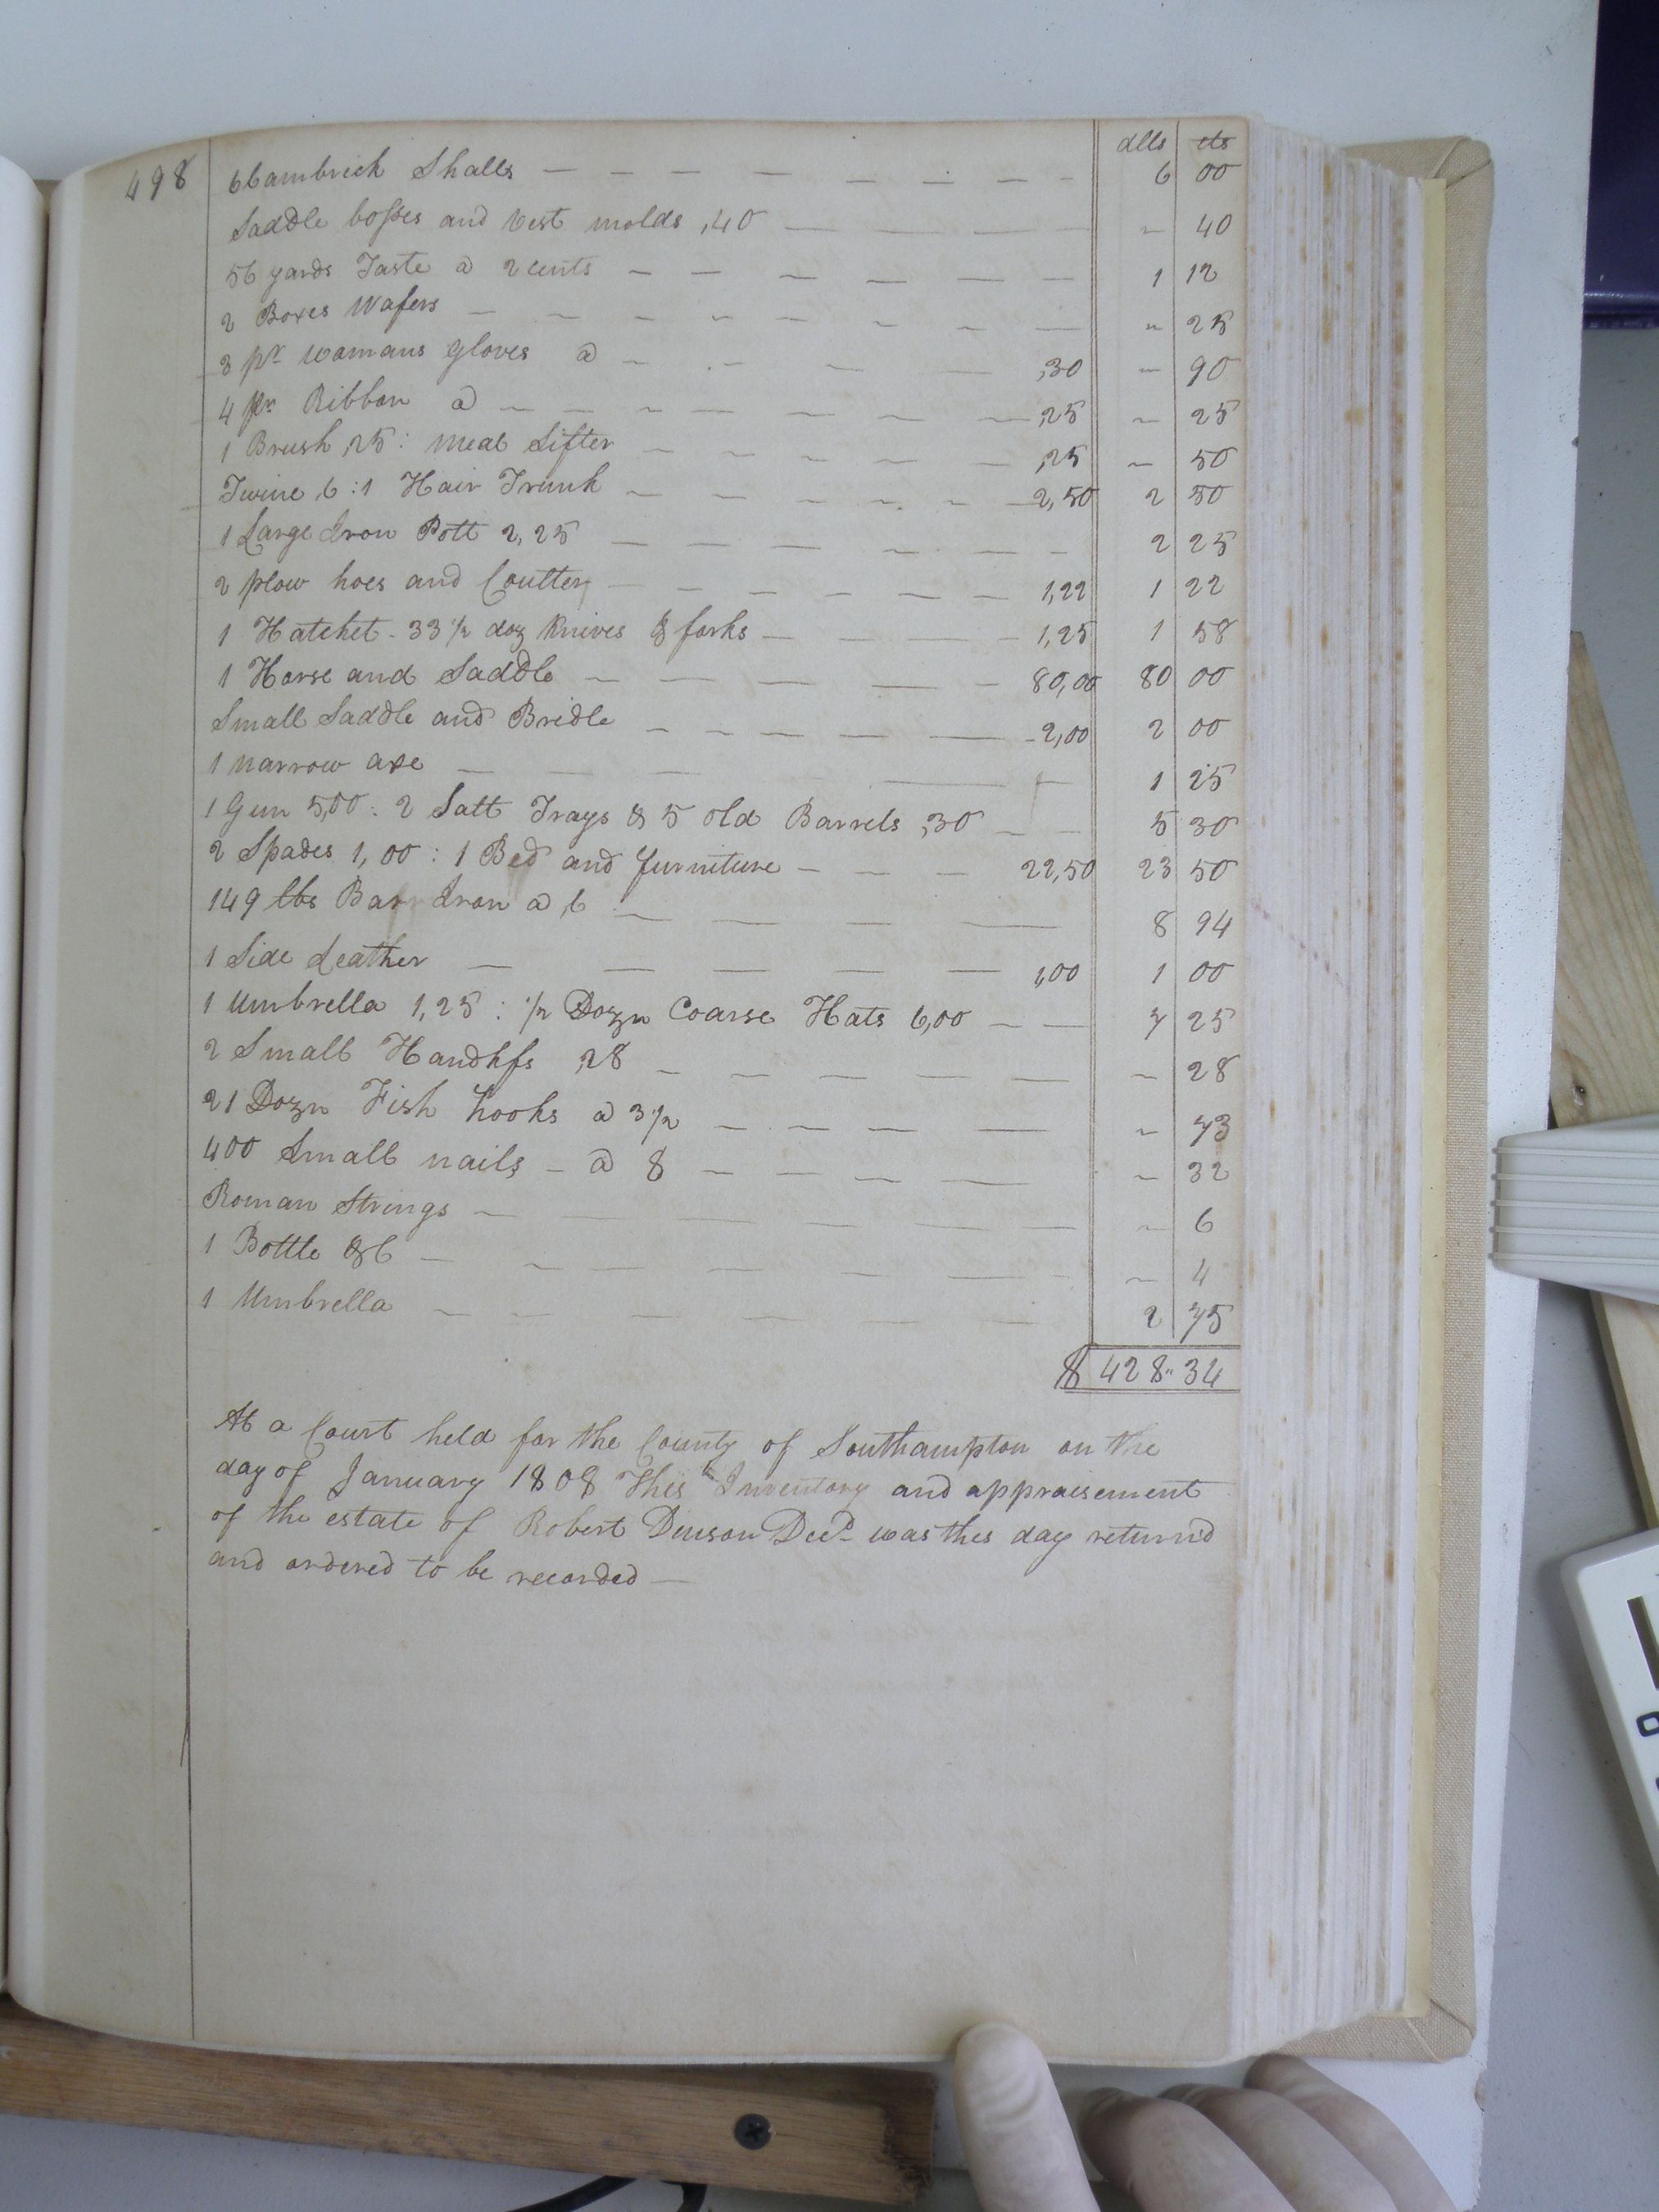 498
dlls cts
6 Cambrick Shalls — 6 00
Saddle bosses and Vest molds ,40 — " 40
56 yards Taste @ 2 cents — 1 12
2 Boxes Wafers — " 25
3 pr womans Gloves @ — ,30 " 90
4 ps Ribbon @ — ,25 " 25
1 Brush ,25 : Meal Sifter — ,25 " 50
Twine ,6 : 1 Hair Trunk — 2,50 2 50
1 Large Iron Pott 2,25 — 2 25
2 plow hoes and Coulter — 1,22 1 22
1 Hatchet - 33 1/2 doz Knives & forks — 1,25 1 58
1 Horse and Saddle — 80,00 80 00
Small Saddle and Bridle — 2,00 2 00
1 narrow axe — 1 25
1 Gun 5,00 : 2 Salt Trays & 5 old Barrels ,30 — 5 30
2 Spades 1,00 : 1 Bed and furniture — 22,50 23 50
149 lbs Barr Iron @ ,6 — 8 94
1 Side Leather — 1,00 1 00
1 Umbrella 1,25 : 1/2 Dozn Coarse Hats 6,00 — 7 25
2 Small Handkfs ,28 — " 28
21 Dozn Fish hooks @ 3 1/2 — " 73
400 Small nails - @ 8 — " 32
Roman Strings — " 6
1 Bottle &C — " 4
1 Umbrella — 2 75
$ 428" 34
At a Court held for the County of Southampton on the
day of January 1808 This Inventory and appraisement
of the estate of Robert Denson Decd was this day return'd
and ordered to be recorded —